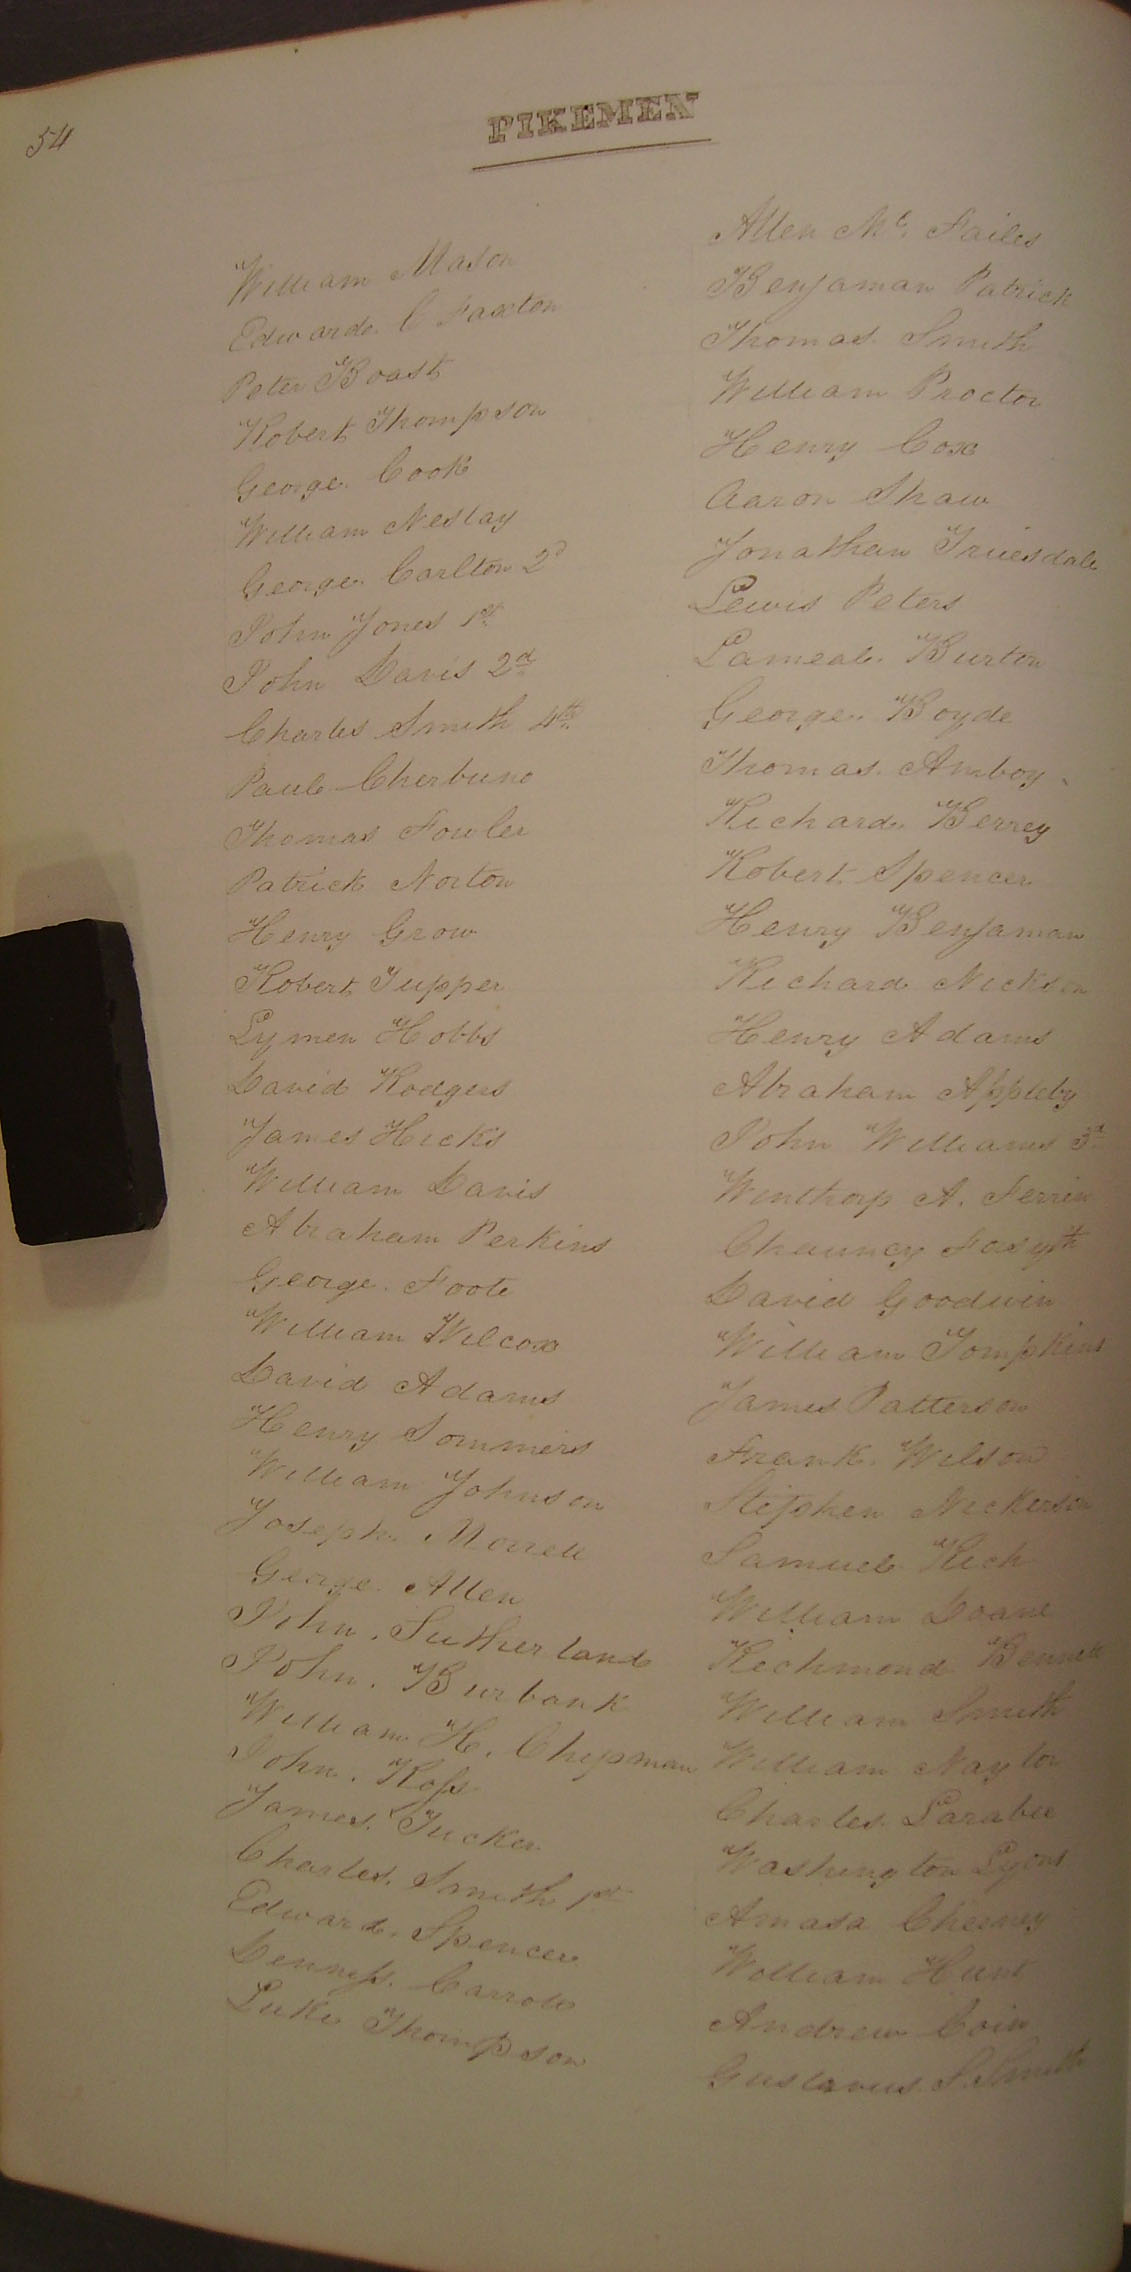 54
PIKEMEN
William Mason
Edward C Faxton
Peter Boast
Robert Thompson
George Cook
William Neslay
George Carlton 2d
John Jones 1st
John Davis 2d
Charles Smith 4th
Paul Cherbuno
Thomas Fowler
Patrick Norton
Henry Grow
Robert Tupper
Lymen Hobbs
David Rodgers
James Hicks
William Davis
Abraham Perkins
George Foote
William Wilcox
David Adams
Henry Sommers
William Johnson
Joseph Morrell
George Allen
John Sutherland
John Burbank
William H. Chipman
John Ross
James Tucker
Charles Smith 1st
Edward Spencer
Denness Carroll
Luke Thompson
Allen Mc. Failes
Benjaman Patrick
Thomas Smith
William Proctor
Henry Cox
Aaron Shaw
Jonathan Truesdale
Lewis Peters
Lameal Burton
George Boyde
Thomas Amboy
Richard Berrey
Robert Spencer
Henry Benjaman
Richard Nickson
Henry Adams
Abraham Appleby
John Williams 3d
Winthorp A. Ferrin
Chauncy Fosyth
David Goodwin
William Tompkins
James Patterson
Frank Wilson
Stephen Nickerson
Samuel Rich
William Doane
Richmond Bennett
William Smith
William Naylor
Charles Larabee
Washington Lyons
Amasa Chesney
William Hunt
Andrew Coin
Gustavus S. Smith